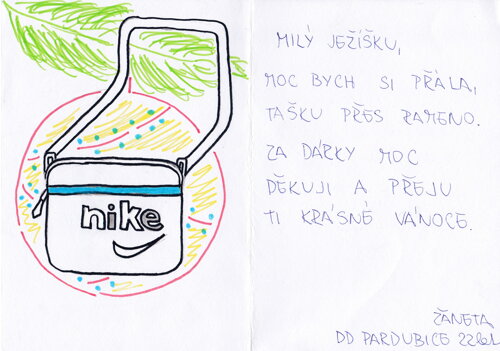 nike
MILÝ JEŽÍŠKU,
MOC BYCH SI PŘÁLA,
TAŠKU PŘES RAMENO.
ZA DÁRKY MOC
DĚKUJI A PŘEJU
TI KRÁSNÉ VÁNOCE.
ŽANETA
DD PARDUBICE 22let